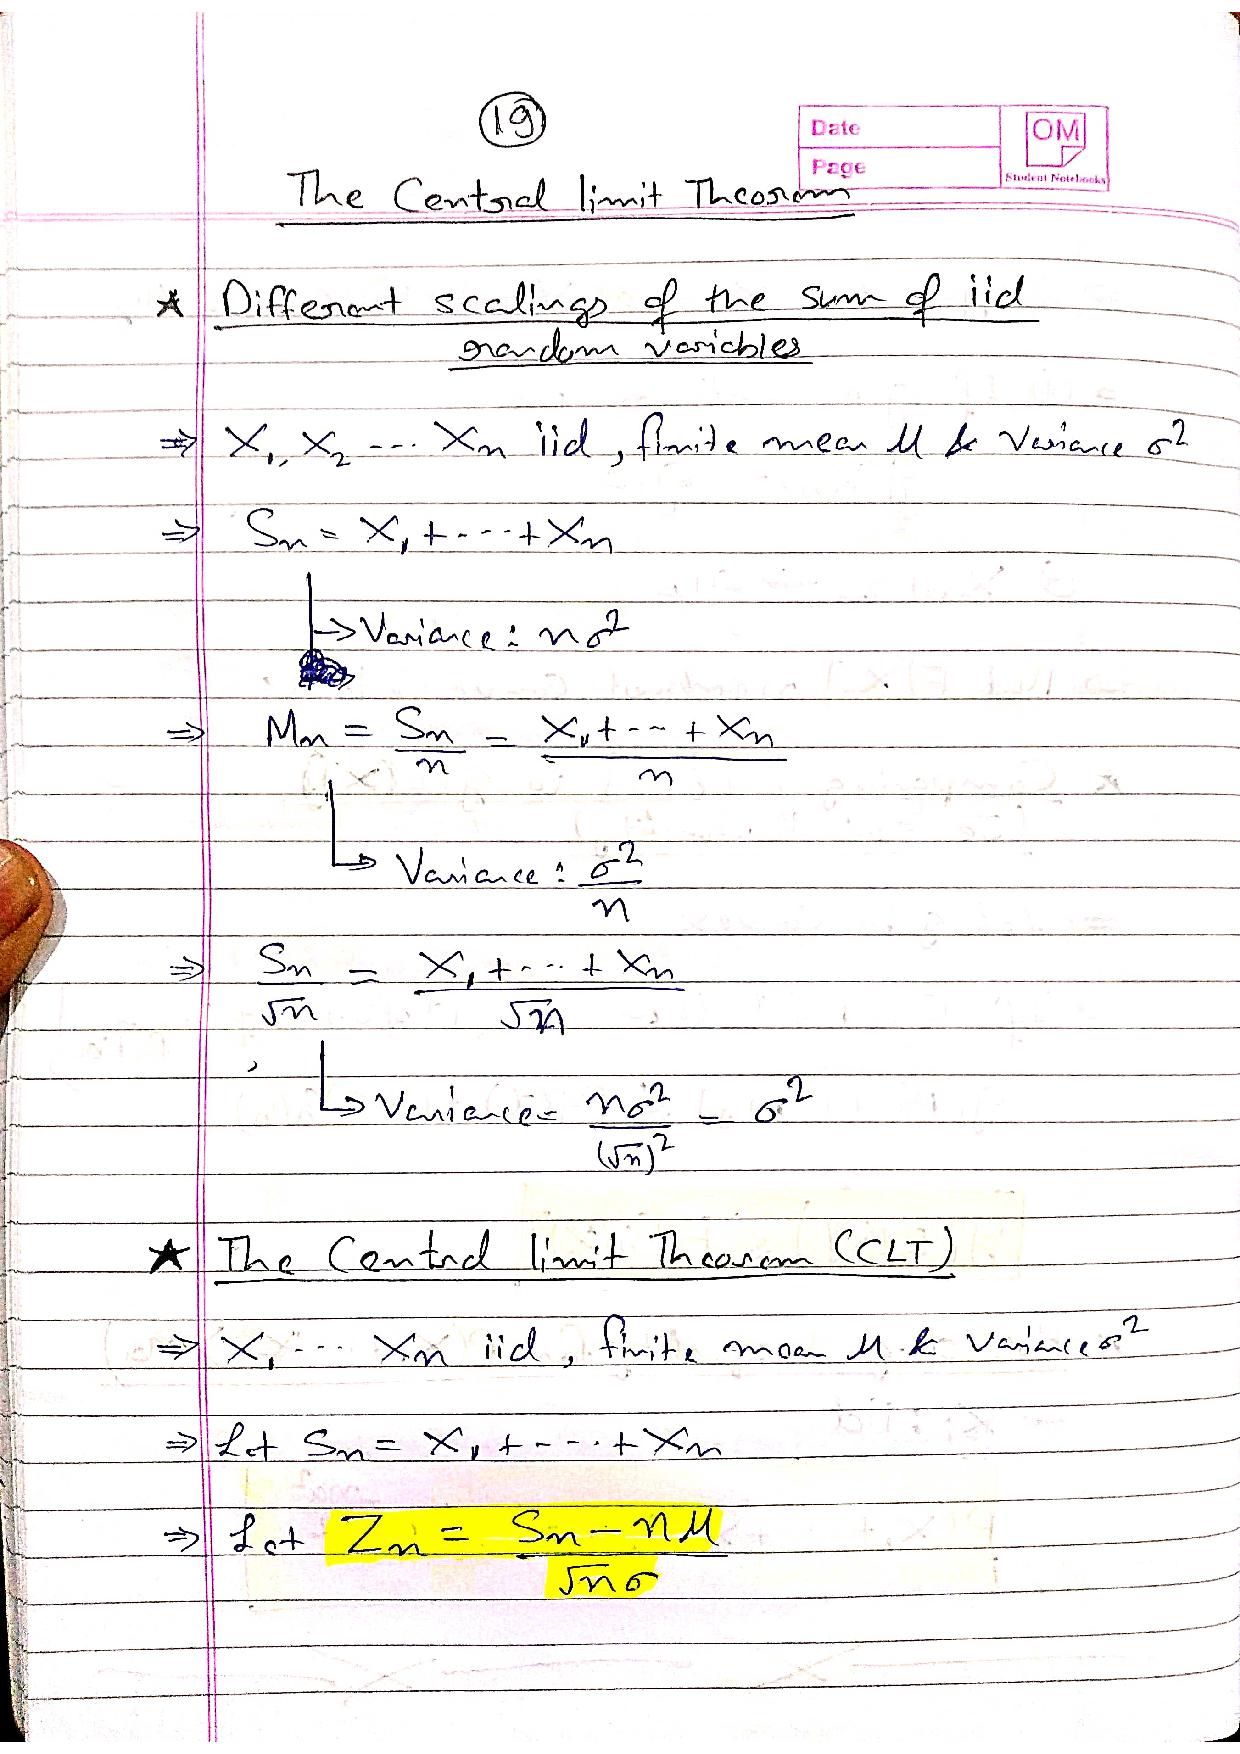 19
Date
OM
Page
Student Notebooks
The Central limit Theorem
★ Different scalings of the sum of iid
random variables
⇒ X₁, X₂ --- Xn iid, finite mean μ & Variance σ²
⇒ Sn = X₁ + --- + Xn
→ Variance: nσ²
⇒ Mn = Sn/n = (X₁ + --- + Xn)/n
↳ Variance: σ²/n
⇒ Sn/√n = (X₁ + --- + Xn)/√n
↳ Variance = nσ²/(√n)² = σ²
★ The Central limit Theorem (CLT)
⇒ X₁ --- Xn iid, finite mean μ & Variance σ²
⇒ Let Sn = X₁ + --- + Xn
⇒ Let Zn = (Sn - nμ)/(√n σ)